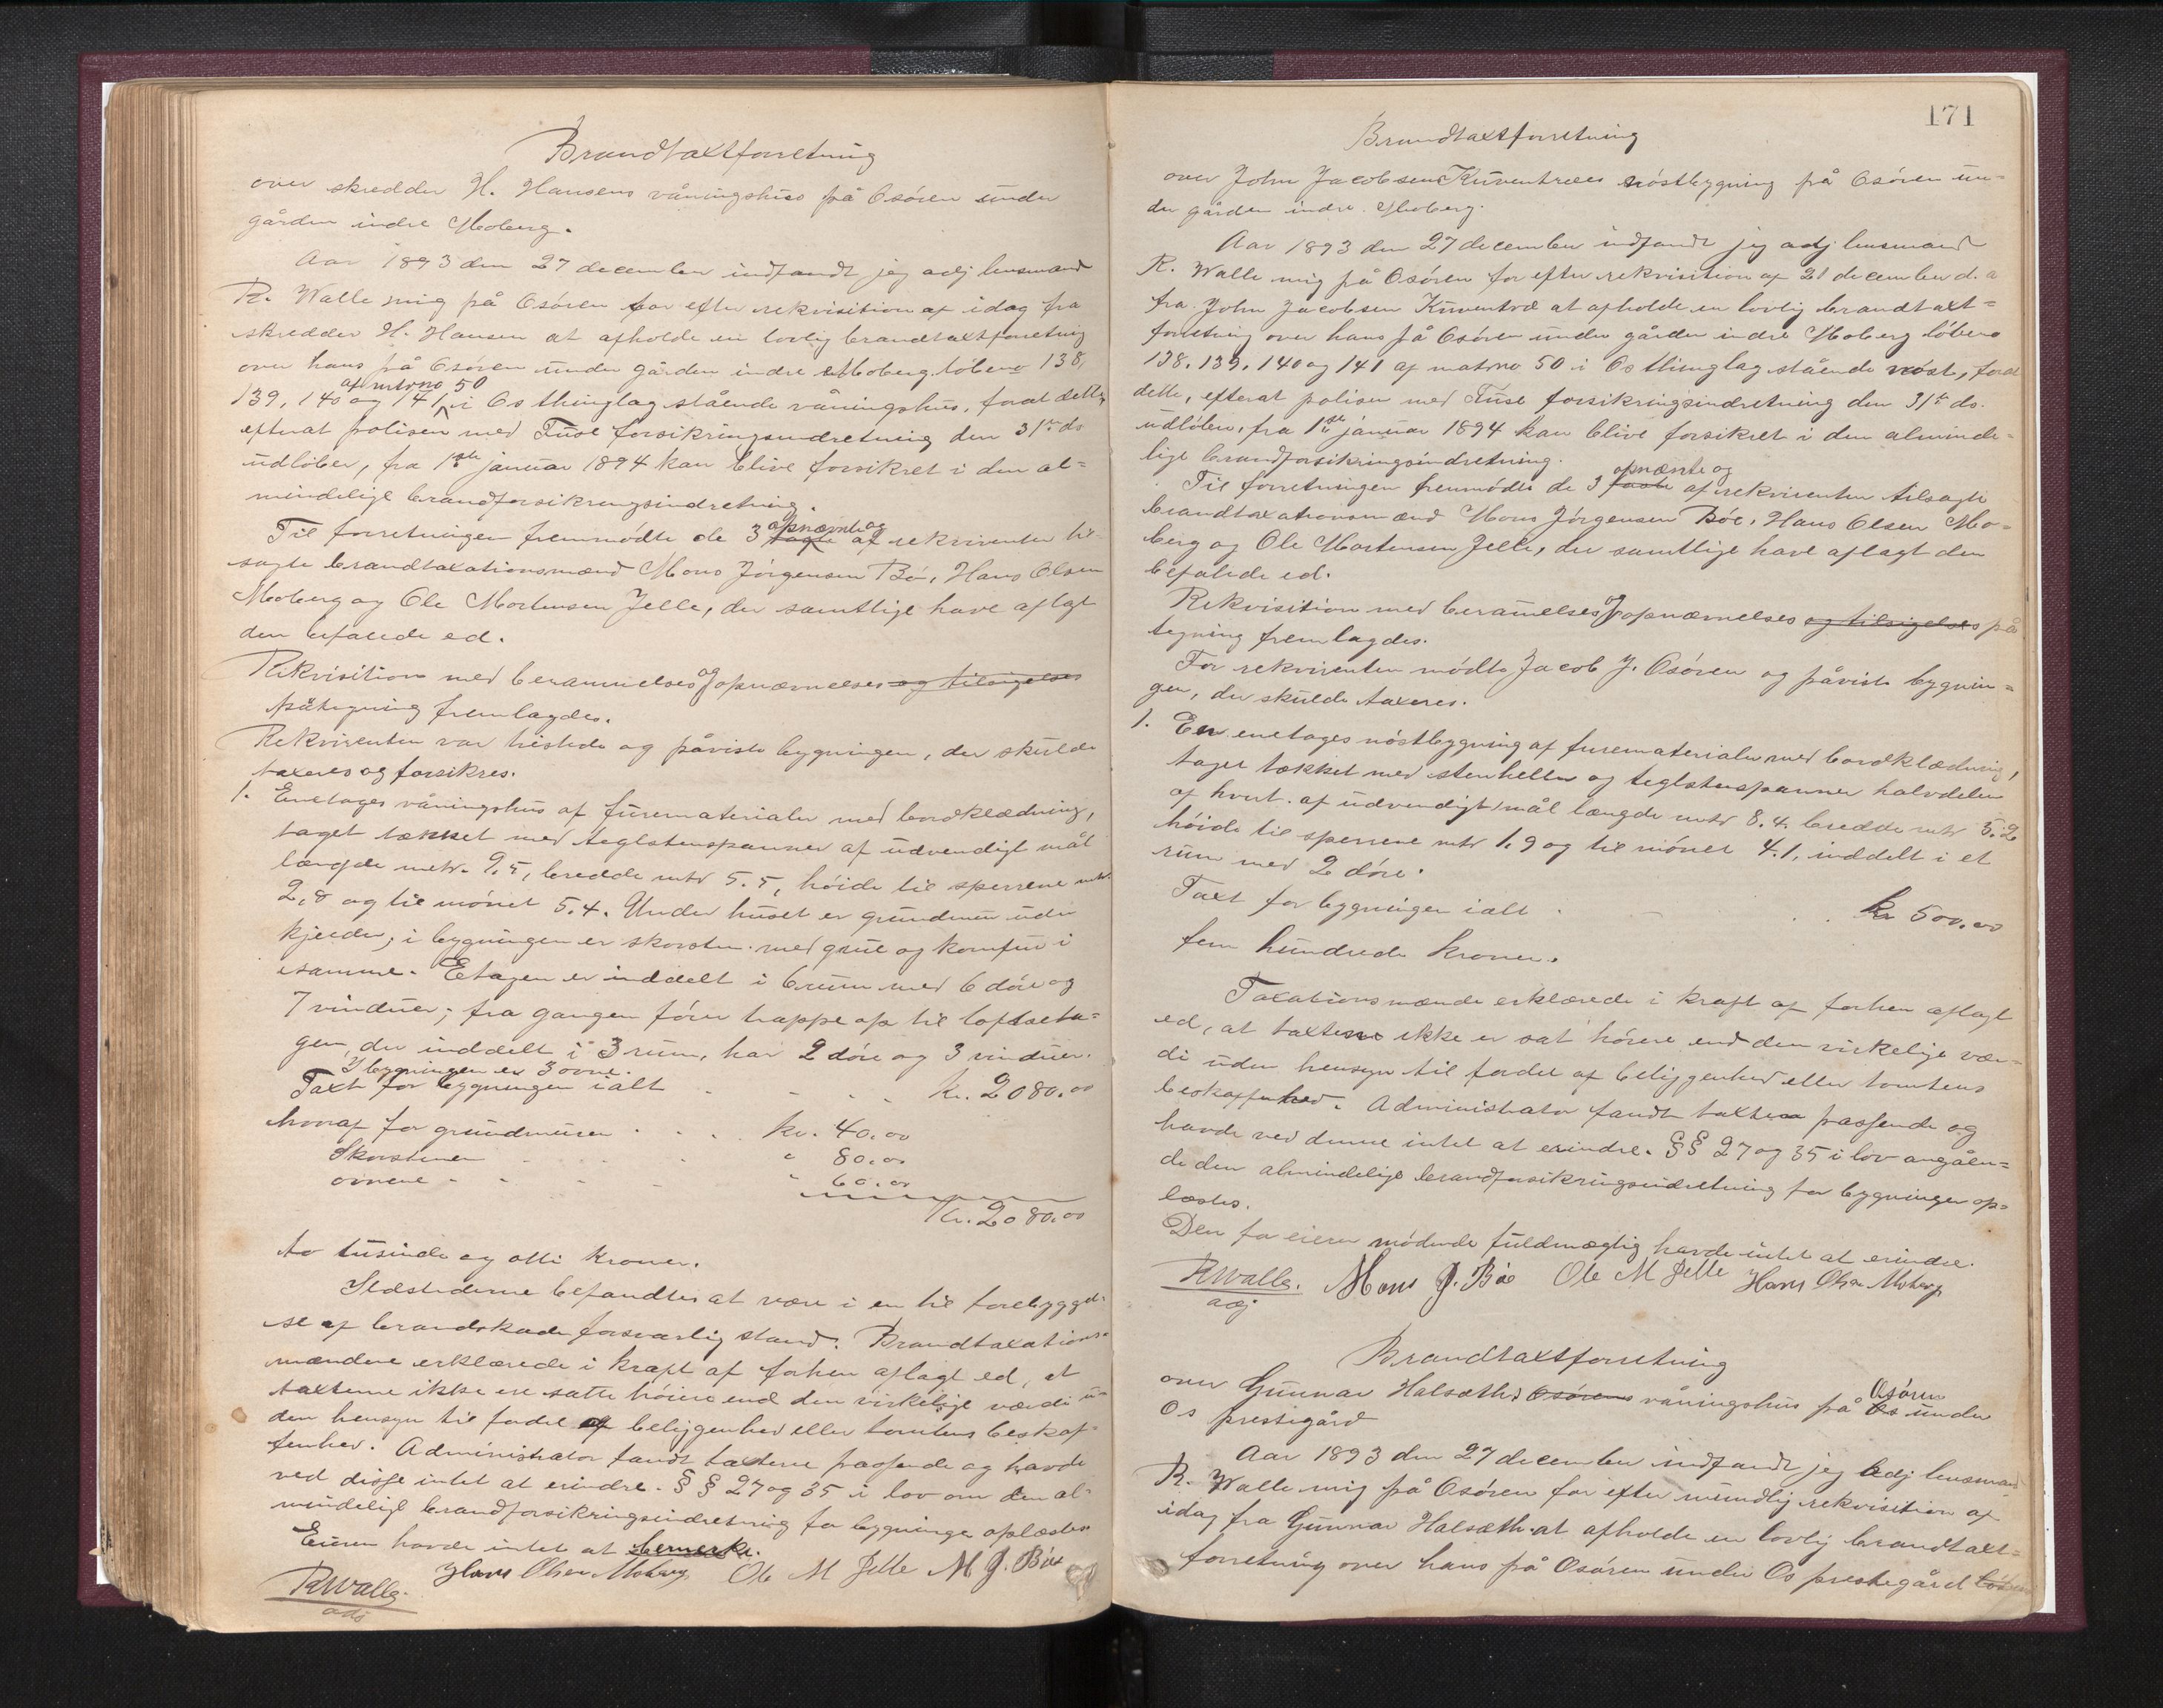 Brandtaxtforretning
over skredder H. Hansens våningshus på Osøren under
gården indre Moberg.
Aar 1893 den 27 december indfandt jeg adj lensmand
R. Walle mig på Osøren for efter rekvisition af idag fra
skredder H. Hansen at afholde en lovlig brandtaxtforretnig
over hans på Osøren under gården indre Moberg löbeno 138,
af matrno 50
139, 140 og 141 i Os thinglag stående våningshus, forat dette,
efterat polisen med Tuse forsikringsindretning den 31te ds
udløber, fra 1ste januar 1894 kan blive forsikret i den al=
mindelige brandforsikrengsindretning.
opnævnte og
Til forretningen fremmødte de 3 faste af rekvirenten til-
sagte brandtaxationsmænd Mons Jørgensen Bø, Hans Olsen
Moberg og Ole Mortensen Jelle, der samtlige have aflagt
den befalede ed.
Rekvisition med berammelses og opnævnelses og tilsigelses
påtegning fremlagdes.
Rekvirenten var tilstede og påviste bygningen, der skulde
taxeres og forsikres.
1. Enetages våningshus af furematerialer med bordklædning,
taget tækket med teglstenspanner af udvendigt mål
længde metr. 9.5, bredde mtr 5.5, høide til sperrene mtr.
2,8 og til mønet 5.4. Under huset er grundmur uden
kjelder; i bygningen er skorsten med grue og komfur i
samme. Etagen er inddelt i 6 rum med 6 døre og
7 vinduer; fra gangen fører trappe op til loftseta=
gen, der inddelt i 3 rum, har 2 døre og 3 vinduer.
I bygningen er 3 ovne.
Taxt for bygningen ialt . - . . kr. 2080.00
hvoraf for grundmuren . . . kr. 40.00
Skorstenen - - - " 80.00
ovnene - - - - " 60.00
Kr. 2080.00
to tusinde og otti kroner.
Ildstederne befandtes at være i en til forebyggel-
se af brandskade forsvarlig stand. Brandtaxations-
mændene erklærede i kraft af forhen aflagt ed, at
taxterne ikke ere satte høiere end den virkelige værdi u=
den hensyn til fordel af beliggenhed eller tomtens beskaf-
fenhed. Administrator fandt taxterne passende og havde
ved disse intet at erindre. §§ 27 og 35 i lov om den al-
mindelige brandforsikringsindretning for bygninger oplæstes
Eieren havde intet at bemerke.
RWalle. Hans Olsen Moberg Ole M Jelle M J. Bøe
adj
171
Brandtaxtforretning
over John Jacobsen Kuventræes nøstbygning på Osøren un=
der gården indre Moberg.
Aar 1893 den 27 december indfandt jeg adj lensmand
R. Walle mig på Osøren for efter rekvisition af 21 december d. a
fra John Jacobsen Kuventræ at afholde en lovlig brandtaxt=
forretning over hans på Osøren under gården indre Moberg löbeno
138. 139. 140 og 141 af matrno 50 i Os thinglag stående nøst, forat
dette, efterat polisen med Tuse forsikringsindretning den 31te ds.
udløber, fra 1ste januar 1894 kan blive forsikret i den alminde-
lige brandforsikringsindretning.
opnævnte og
Til forretningen fremmødte de 3 faste af rekvirenten tilsagte
brandtaxationsmænd Mons Jørgensen Bøe, Hans Olsen Mo-
berg og Ole Mortensen Jelle, der samtlige have aflagt den
befalede ed.
Rekvisition med berammelses og opnævnelses og tilsigelses på
tegning fremlagdes.
For rekvirenten mødte Jacob J. Osøren og påviste bygnin=
gen, der skulde taxeres.
1. En enetages nøstbygning af furematerialer med bordklædning,
taget tækket med stenheller og teglstenspanner halvdelen
af hvert. af udvendigt mål længde mtr 8.4. bredde mtr 5.2
høide til sperrene mtr 1.9 og til mønet 4.1, inddelt i et
rum med 2 døre.
Taxt for bygningen ialt . - . . kr 500.00
fem hundrede kroner.
Taxationsmænde erklærede i kraft af forhen aflagt
ed, at taxterne ikke er sat høiere end den virkelige vær=
di uden hensyn til fordel af beliggenhed eller tomtens
beskaffenhed. Administrator fandt taxten passende og
havde ved denne intet at erindre. §§ 27 og 35 i lov angåen=
de den almindelige brandforsikringsindretning for bygninger op=
læstes.
Den for eieren mødende fuldmægtig havde intet at erindre.
RWalle. Mons J. Bøe Ole M Jelle Hans Olsen Moberg
adj
Brandtaxtforretning
over Gunnar Halsæths Osørens våningshus på Os under
Osøren
Os prestegård
Aar 1893 den 27 december indfandt jeg adj lensmand
R. Walle mig på Osøren for efter mundlig rekvisition af
idag fra Gunnar Halsæth at afholde en lovlig brandtaxt=
forretning over hans på Osøren under Os prestegård